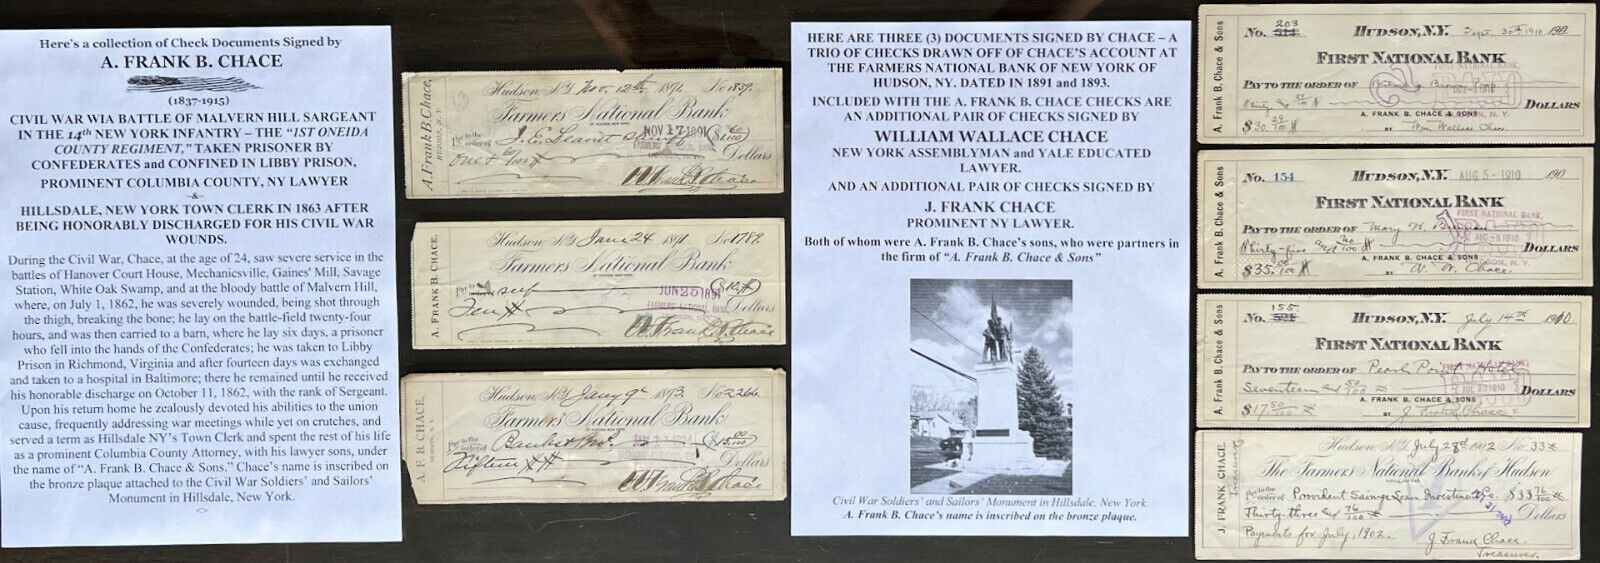 Here's a collection of Check Documents Signed by
A. FRANK B. CHACE
(1837-1915)
CIVIL WAR WIA BATTLE OF MALVERN HILL SARGEANT
IN THE 14th NEW YORK INFANTRY – THE "1ST ONEIDA
COUNTY REGIMENT," TAKEN PRISONER BY
CONFEDERATES and CONFINED IN LIBBY PRISON,
PROMINENT COLUMBIA COUNTY, NY LAWYER
-&-
HILLSDALE, NEW YORK TOWN CLERK IN 1863 AFTER
BEING HONORABLY DISCHARGED FOR HIS CIVIL WAR
WOUNDS.
During the Civil War, Chace, at the age of 24, saw severe service in the
battles of Hanover Court House, Mechanicsville, Gaines' Mill, Savage
Station, White Oak Swamp, and at the bloody battle of Malvern Hill,
where, on July 1, 1862, he was severely wounded, being shot through
the thigh, breaking the bone; he lay on the battle-field twenty-four
hours, and was then carried to a barn, where he lay six days, a prisoner
who fell into the hands of the Confederates; he was taken to Libby
Prison in Richmond, Virginia and after fourteen days was exchanged
and taken to a hospital in Baltimore; there he remained until he received
his honorable discharge on October 11, 1862, with the rank of Sergeant.
Upon his return home he zealously devoted his abilities to the union
cause, frequently addressing war meetings while yet on crutches, and
served a term as Hillsdale NY's Town Clerk and spent the rest of his life
as a prominent Columbia County Attorney, with his lawyer sons, under
the name of "A. Frank B. Chace & Sons." Chace's name is inscribed on
the bronze plaque attached to the Civil War Soldiers' and Sailors'
Monument in Hillsdale, New York.
A. Frank B. Chace,
HUDSON, N.Y.
Hudson N.Y. Nov. 12th 1891 No 1839
Farmers National Bank
Pay to the order of J. E. Leavitt
NOV 17 1891
Dollars
A. Frank B. Chace
A. FRANK B. CHACE.
Hudson, N.Y. June 24 1891 No 1789
Farmers National Bank
Pay to the order of self
JUN 25 1891
FARMERS' NATIONAL BANK
Ten Dollars
A. Frank B. Chace
A. F. B. CHACE,
HUDSON, N.Y.
Hudson N.Y. Jany 9 1893 No 2266
Farmers' National Bank
Fifteen Dollars
A. Frank B. Chace
HERE ARE THREE (3) DOCUMENTS SIGNED BY CHACE – A
TRIO OF CHECKS DRAWN OFF OF CHACE'S ACCOUNT AT
THE FARMERS NATIONAL BANK OF NEW YORK OF
HUDSON, NY. DATED IN 1891 and 1893.
INCLUDED WITH THE A. FRANK B. CHACE CHECKS ARE
AN ADDITIONAL PAIR OF CHECKS SIGNED BY
WILLIAM WALLACE CHACE
NEW YORK ASSEMBLYMAN and YALE EDUCATED
LAWYER.
AND AN ADDITIONAL PAIR OF CHECKS SIGNED BY
J. FRANK CHACE
PROMINENT NY LAWYER.
Both of whom were A. Frank B. Chace's sons, who were partners in
the firm of "A. Frank B. Chace & Sons"
Civil War Soldiers' and Sailors' Monument in Hillsdale, New York.
A. Frank B. Chace's name is inscribed on the bronze plaque.
A. Frank B. Chace & Sons
No. 203 HUDSON, N.Y. Sept. 30th 1910 190
FIRST NATIONAL BANK
PAY TO THE ORDER OF
Thirty DOLLARS
$30.
A. FRANK B. CHACE & SONS
BY Wm. Wallace Chace.
A. Frank B. Chace & Sons
No. 154 HUDSON, N.Y. AUG 5 - 1910 190
FIRST NATIONAL BANK
FIRST NATIONAL BANK,
PAID
AUG - 8 1910
HUDSON, N.Y.
PAY TO THE ORDER OF Mary H.
Thirty-five and no/100 DOLLARS
$35.00/100
A. FRANK B. CHACE & SONS
BY W. W. Chace.
A. Frank B. Chace & Sons
No. 155 HUDSON, N.Y. July 14th 1910
FIRST NATIONAL BANK
PAY TO THE ORDER OF Pearl Point Hotel
Seventeen and 50/100 DOLLARS
$17.50/100
A. FRANK B. CHACE & SONS
BY J. Frank Chace
J. FRANK CHACE
Treasurer
Hudson N.Y. July 28th 1902 No 33
The Farmers National Bank of Hudson
Pay to the order of Provident Savings Loan Investment Co. $33 76/100
Thirty-three and 76/100 Dollars
Payments for July, 1902.
J. Frank Chace
Treasurer.